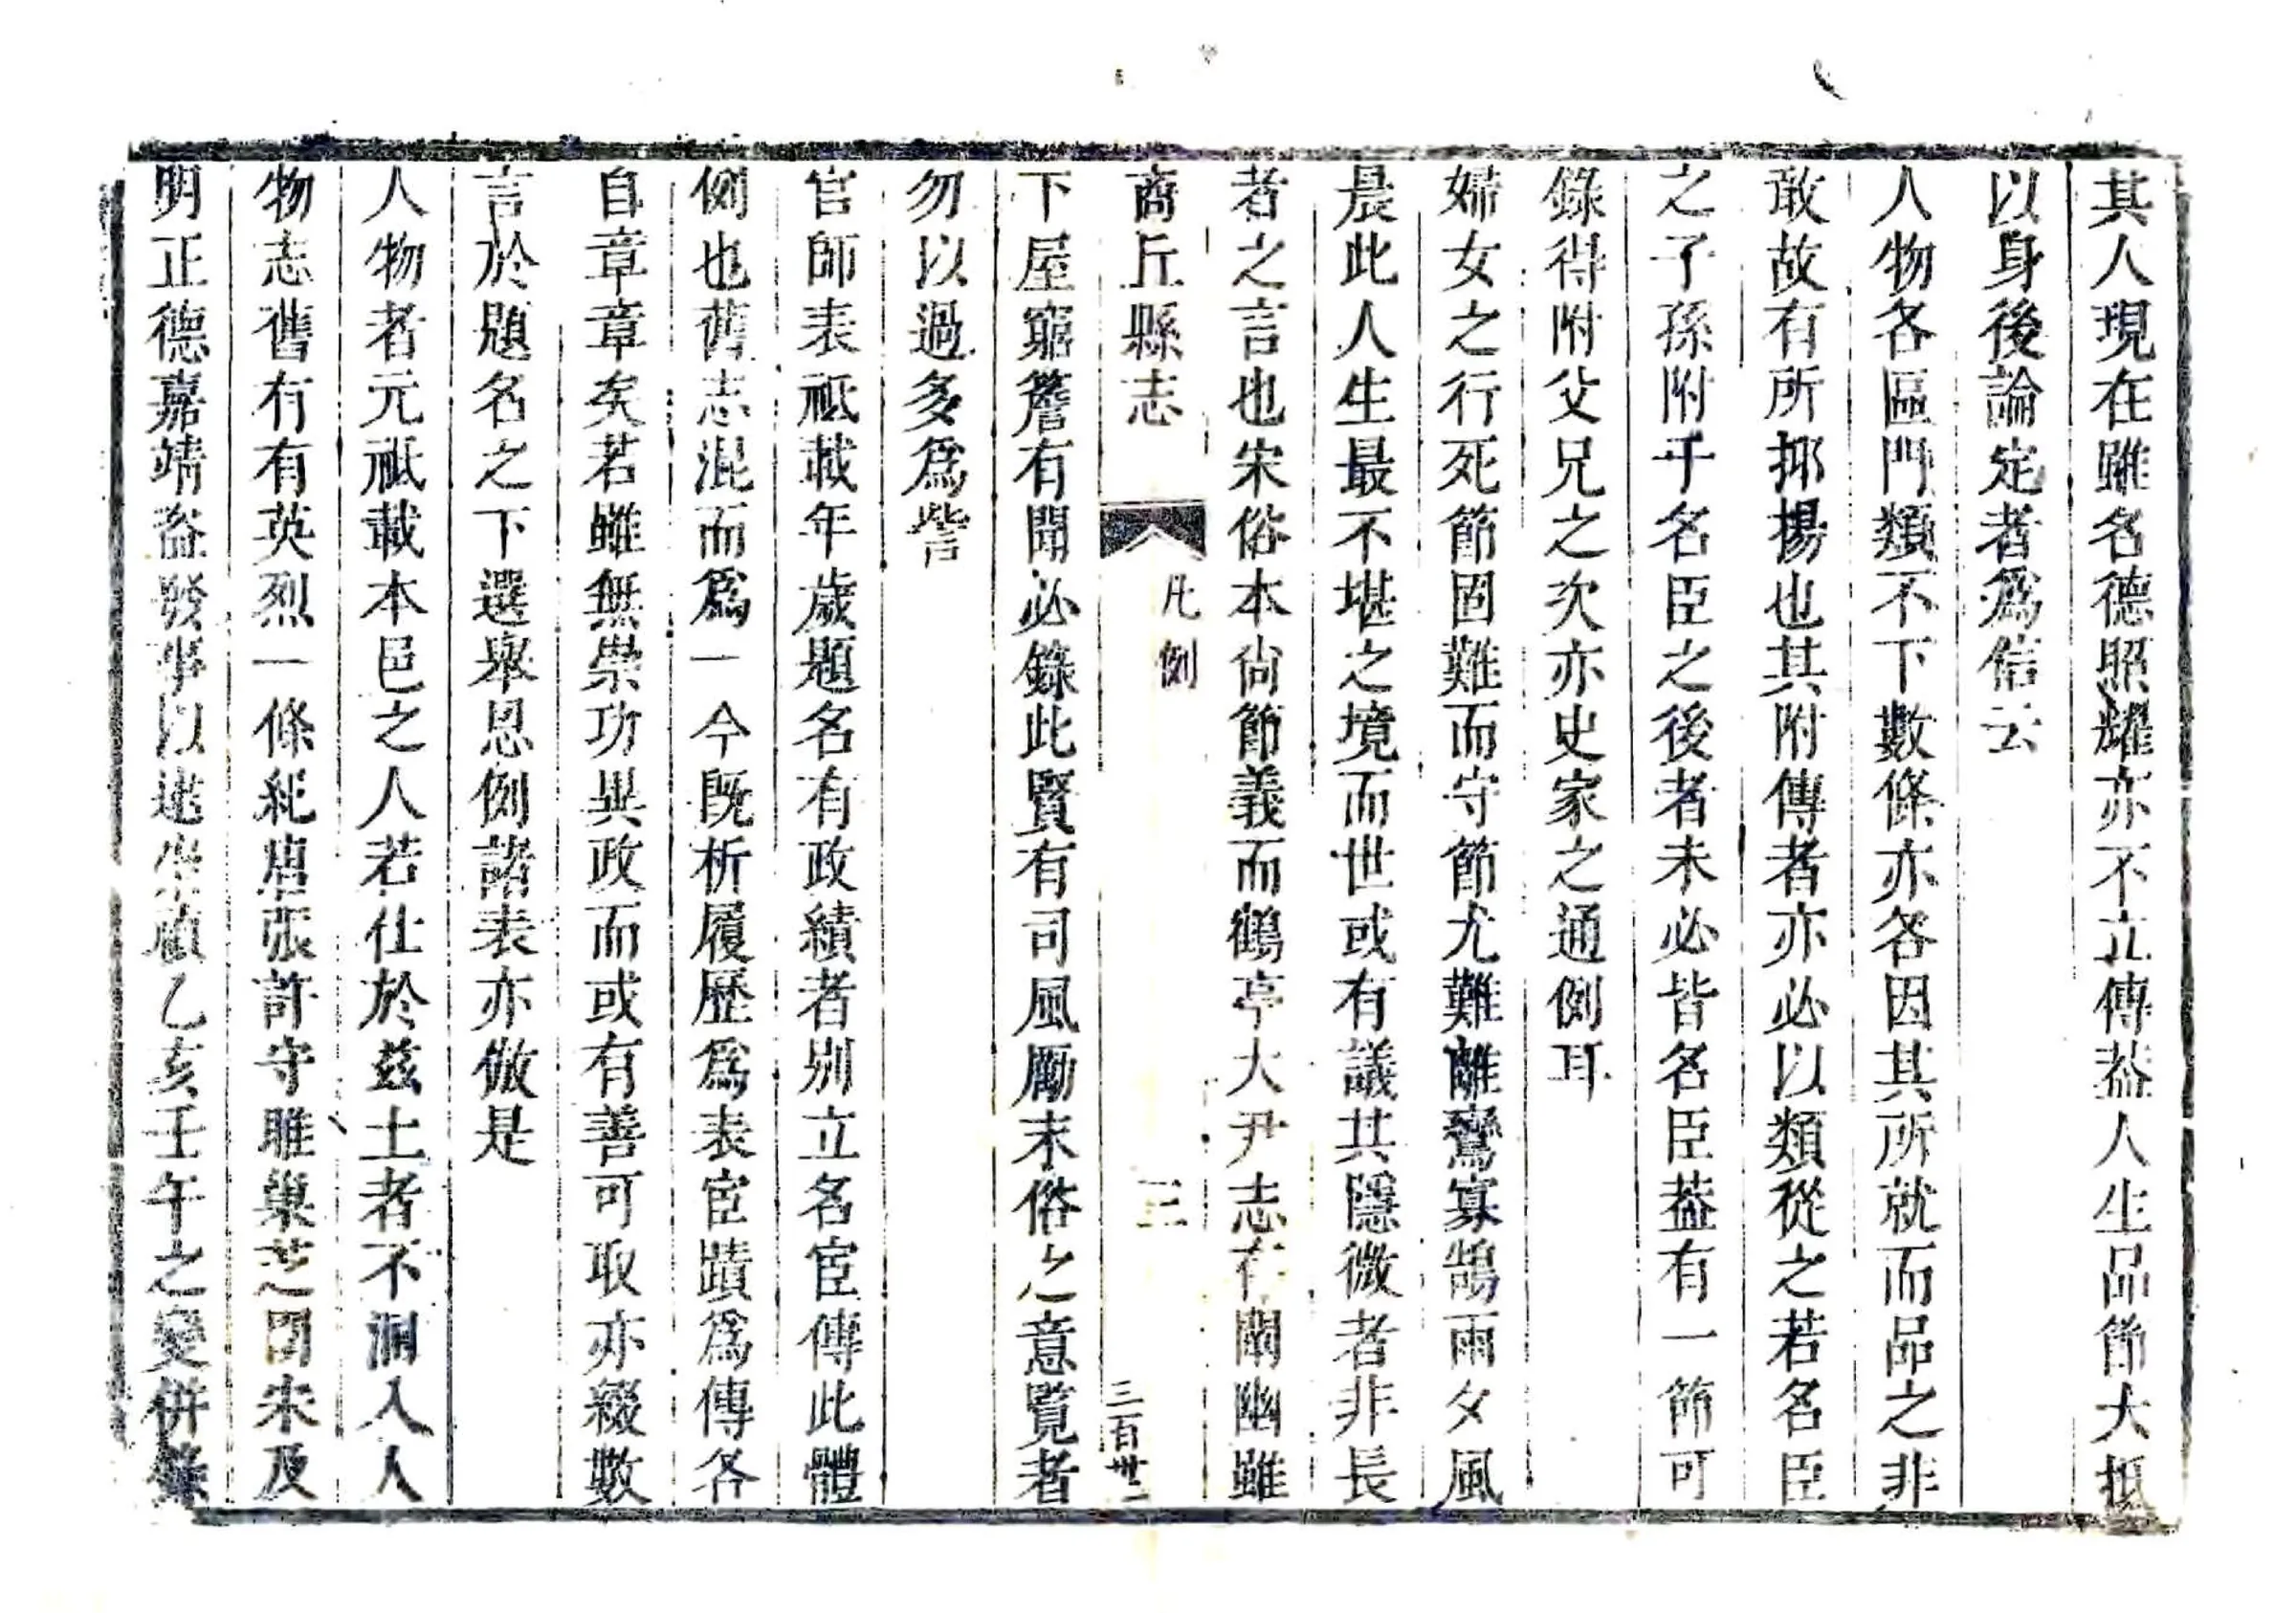 其人現在雖名德照耀亦不立傳葢人生品節大抵
以身後論定者爲信云
人物各區門類不下數條亦各因其所就而品之非
敢故有所抑揚也其附傳者亦必以類從之若名臣
之子孫附于名臣之後者未必皆名臣葢有一節可
錄得附父兄之次亦史家之通例耳
婦女之行死節固難而守節尤難離鸞寡鵠雨夕風
晨此人生最不堪之境而世或有議其隱微者非長
者之言也宋俗本尚節義而鶴亭大尹志在闡幽雖
商丘縣志
凡例
三
三百卅二
下屋窮簷有聞必錄此賢有司風勵末俗之意覽者
勿以過多爲訾
官師表祗載年歲題名有政績者別立名宦傳此體
例也舊志混而爲一今既析履歷爲表宦蹟爲傳各
自章章矣若雖無崇功異政而或有善可取亦綴數
言於題名之下選舉恩例諸表亦倣是
人物者元祗載本邑之人若仕於兹土者不溷入人
物志舊有有英烈一條紀唐張許守雎巢芝圍宋及
明正德嘉靖盜發事以逮崇禎乙亥壬午之變併錄